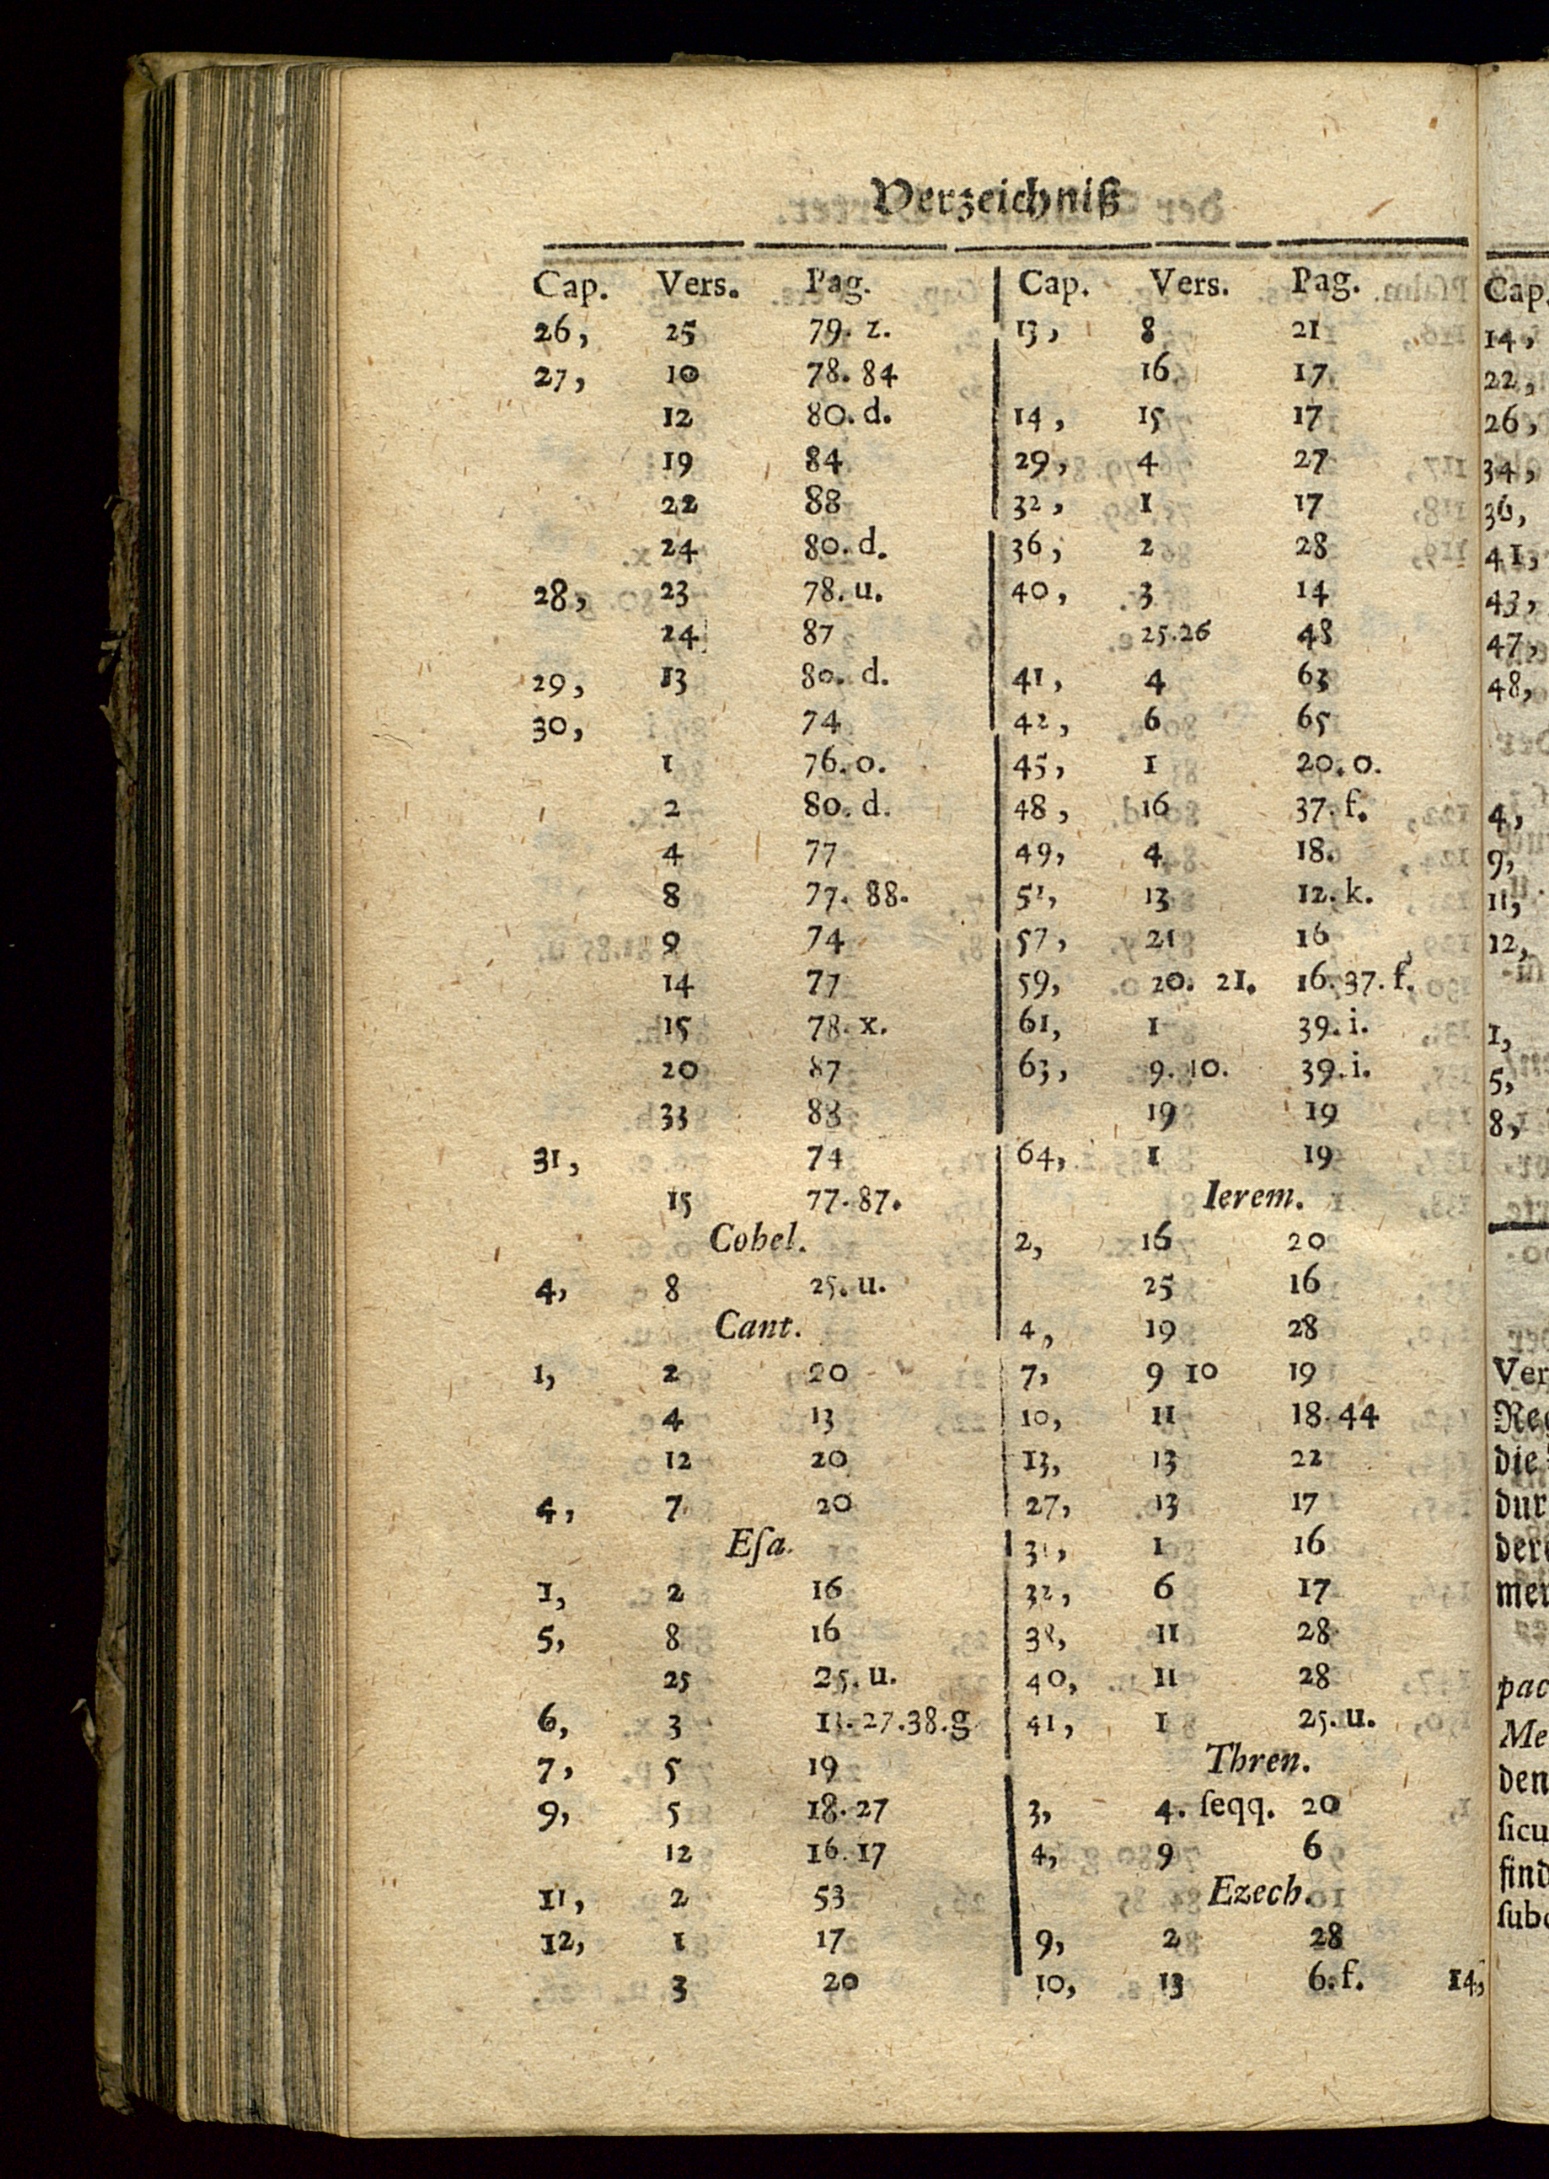 Verzeichniß
Cap. Vers. Pag.
26, 25 79. z.
27, 10 78. 84
12 80. d.
19 84
22 88
24 80. d.
28, 23 78. u.
24 87
29, 13 80. d.
30, 74
1 76. o.
2 80. d.
4 77
8 77. 88.
9 74
14 77
15 78. x.
20 87
33 88
31, 74
15 77. 87.
Cohel.
4, 8 25. u.
Cant.
1, 2 20
4 13
12 20
4, 7 20
Eſa.
1, 2 16
5, 8 16
25 25. u.
6, 3 11. 27. 38. g
7, 5 19
9, 5 18. 27
12 16. 17
11, 2 53
12, 1 17
3 20
Cap. Vers. Pag.
13, 8 21
16 17
14, 15 17
29, 4 27
32, 1 17
36, 2 28
40, 3 14
25. 26 48
41, 4 63
42, 6 65
45, 1 20. o.
48, 16 37. f.
49, 4 18.
51, 13 12. k.
57, 21 16
59, 20. 21. 16. 37. f.
61, 1 39. i.
63, 9. 10. 39. i.
19 19
64, 1 19
Ierem.
2, 16 20
25 16
4, 19 28
7, 9 10 19
10, 11 18. 44
13, 13 22
27, 13 17
31, 1 16
32, 6 17
38, 11 28
40, 11 28
41, 1 25. u.
Thren.
3, 4. ſeqq. 20
4, 9 6
Ezech.
9, 2 28
10, 13 6. f.
14,
Cap.
14,
22,
26,
34,
36,
41,
43,
47,
48,
4,
9,
11,
12,
1,
5,
8,